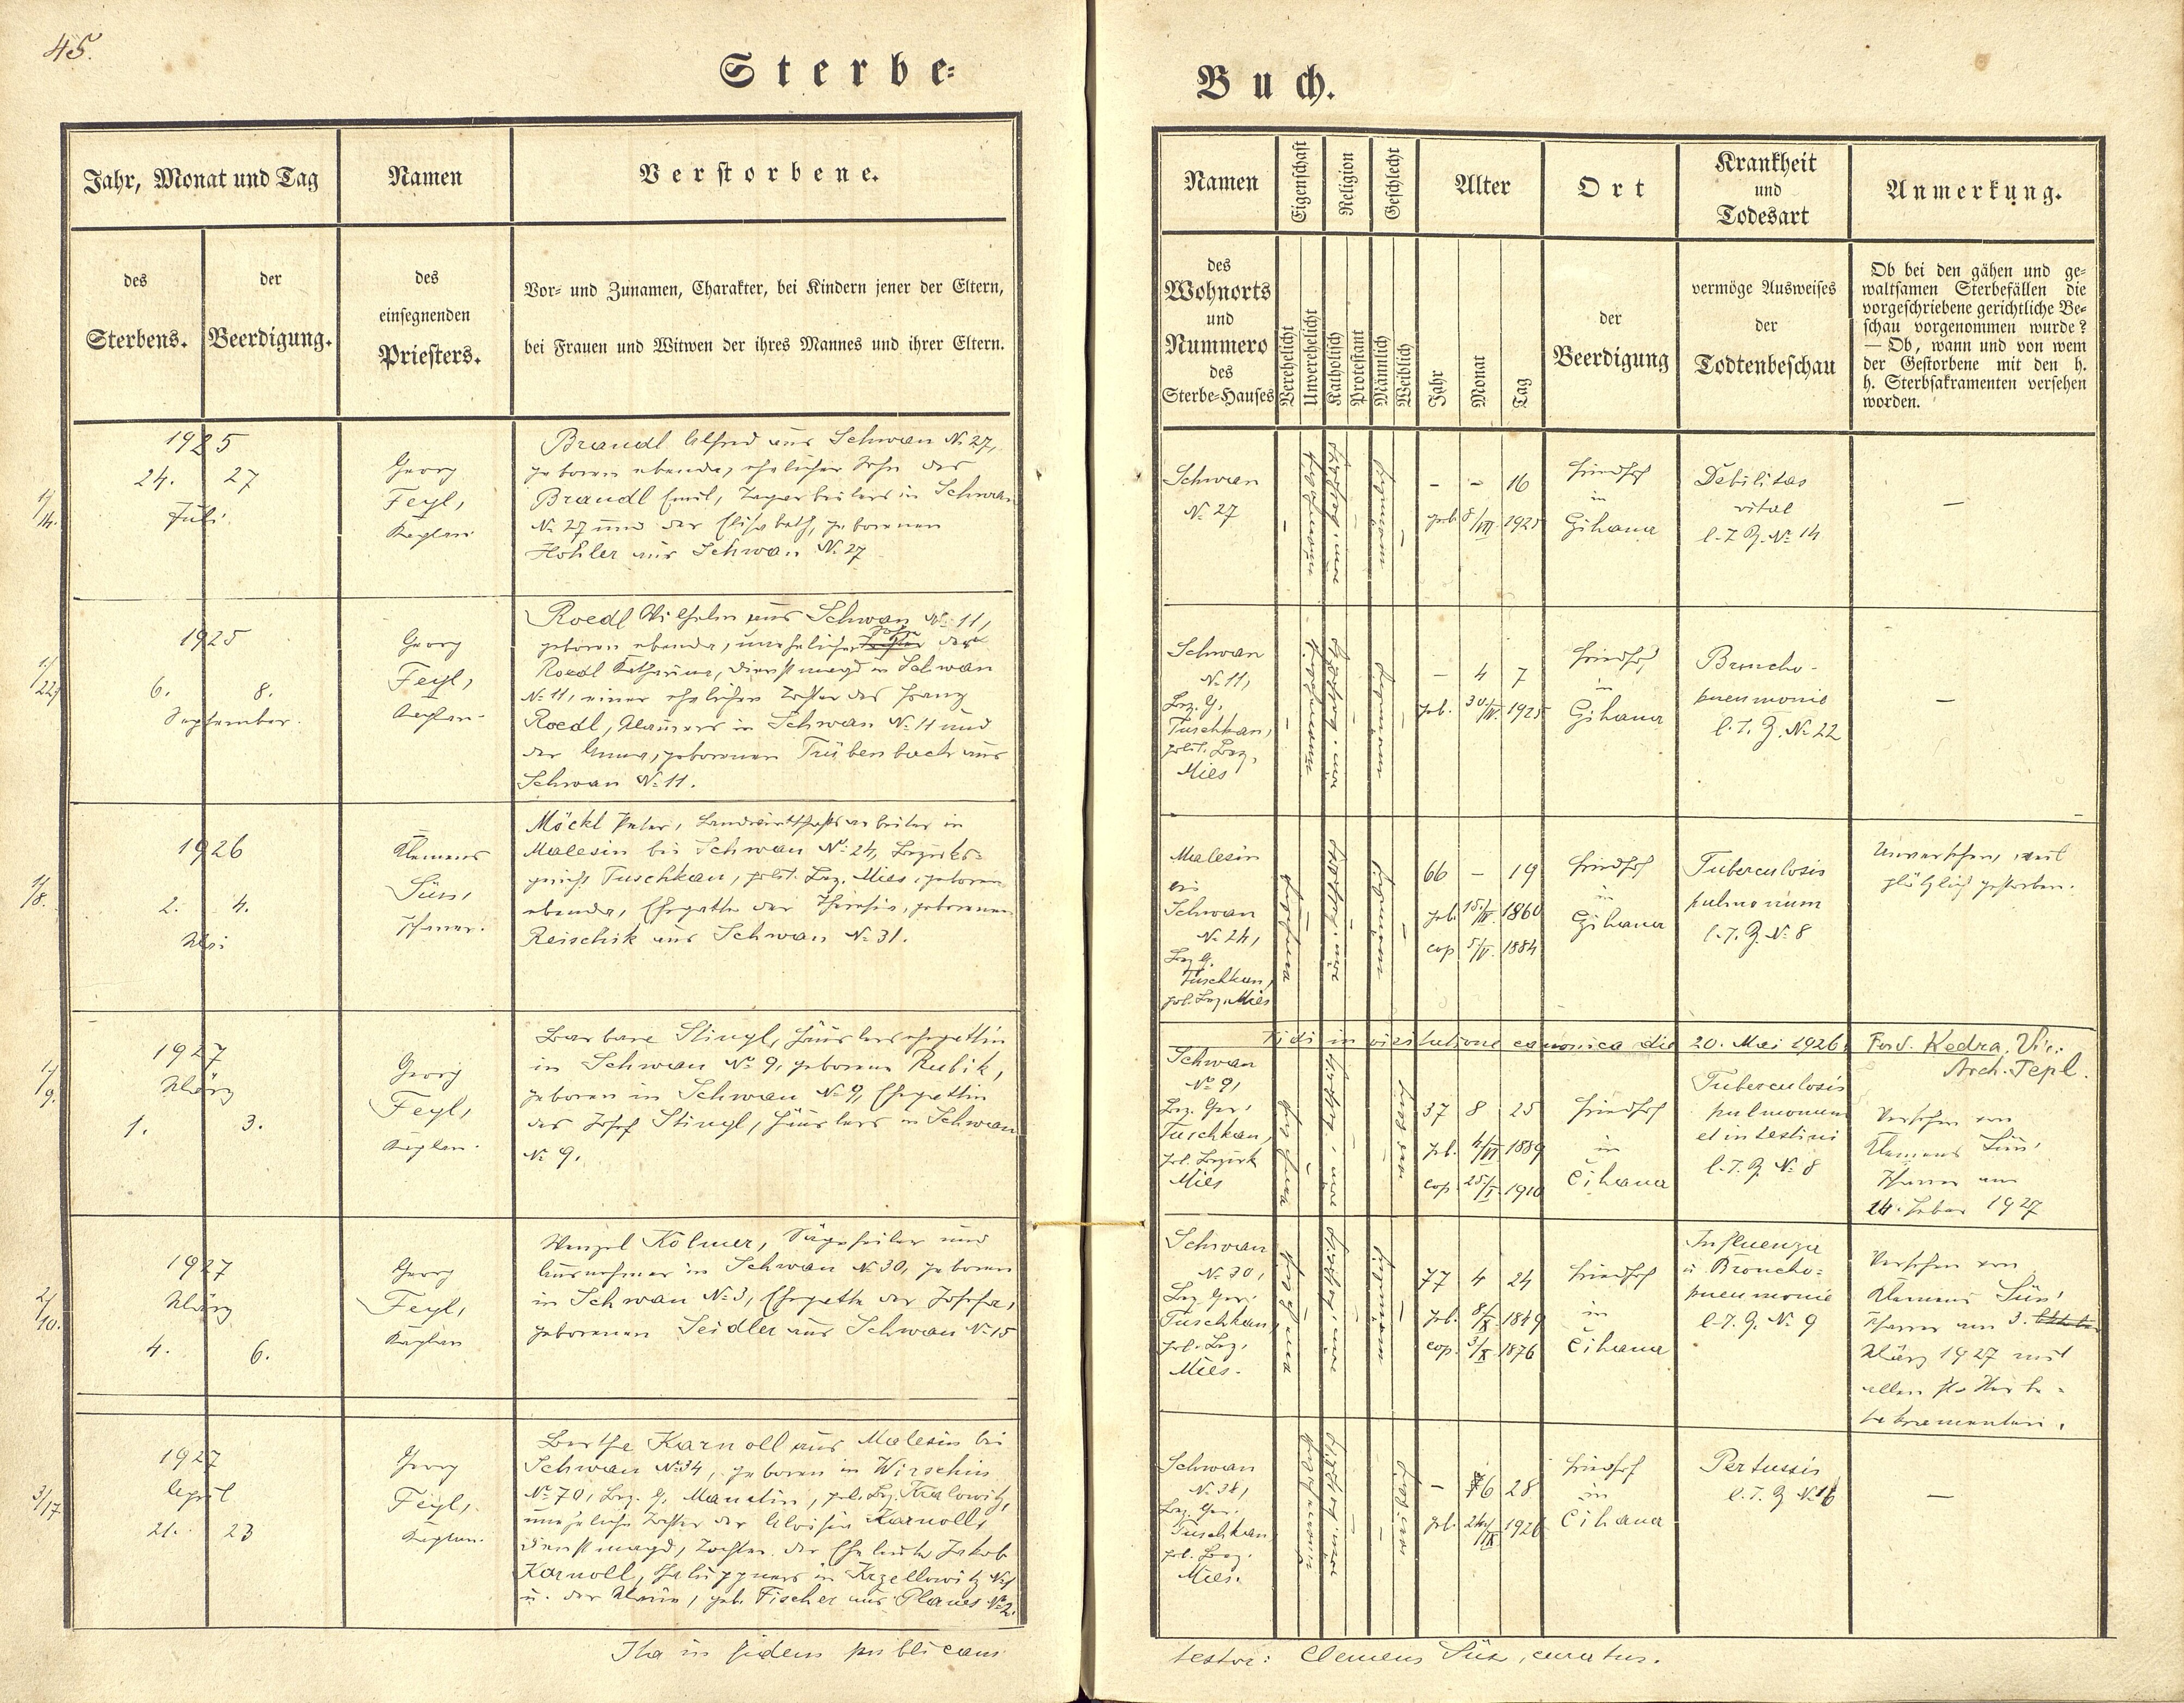 45.
Sterbe=
Jahr, Monat und Tag
Namen
Verstorbene.
des
Sterbens.
der
Beerdigung.
des
einsegnenden
Priesters.
Vor= und Zunamen, Charakter, bei Kindern jener der Eltern,
bei Frauen und Witwen der ihres Mannes und ihrer Eltern.
1/14.
1925
24. 27
Juli.
Georg
Feyl,
Kaplan
Brandl Alfred aus Schwan № 27,
geboren ebenda, ehelicher Sohn des
Brandl Emil, in Schwan
№ 27 und der Elisabeth, geborenen
Hohler aus Schwan № 27
1/22.
1925
6. 8.
September.
Georg
Feyl,
Kaplan.
Roedl Wilhelm aus Schwan № 11,
geboren ebenda, unehelicher Sohn der
Roedl Katharina, Dienstmagd in Schwan
№ 11, einer ehelichen Tochter des Franz
Roedl, Maurers in Schwan № 11 und
der Anna, geborenen Trübenbach aus
Schwan № 11.
1/8.
1926
2. 4.
Mai
Klemens
Süss,
Pfarrer.
Möckl Peter, Landwirtschaftsarbeiter in
Malesin bei Schwan № 24, Bezirks=
gericht Tuschkau, polit. Bez. Mies, geboren
ebenda, Ehegatte der Theresia, geborenen
Reischik aus Schwan № 31.
1/9.
1927
März
1. 3.
Georg
Feyl,
Kaplan.
Barbara Stingl, Häuslersehegattin
in Schwan № 9, geborene Rubik,
geboren in Schwan № 9, Ehegattin
des Josef Stingl, Häuslers in Schwan
№ 9.
2/10.
1927
März
4. 6.
Georg
Feyl,
Kaplan
Wenzel Kolmer, Sägefeiler und
Ausnehmer in Schwan № 30, geboren
in Schwan № 3, Ehegatte der Josefa,
geborenen Seidler aus Schwan № 15
3/17
1927
April
21. 23
Georg
Feyl,
Kaplan.
Berthe Karnoll aus Malesin bei
Schwan № 34, geboren in Wirschin
№ 70, Bez. G. Manetin, pol. Bez. Kralowitz,
uneheliche Tochter der Aloisia Karnoll,
Dienstmagd, Tochter der Eheleute Jakob
Karnoll, in Krzellowitz №
u. der Maria, geb. Fischer aus Planes № 2.
Ita in fidem publicam
Buch.
Namen
Eigenschaft
Religion
Geschlecht
Alter
Ort
Krankheit
und
Todesart
Anmerkung.
des
Wohnorts
und
Nummero
des
Sterbe=Hauses
Verehelicht
Unverehelicht
Katholisch
Protestant
Männlich
Weiblich
Jahr
Monat
Tag
der
Beerdigung
vermöge Ausweises
der
Todtenbeschau
Ob bei den gähen und ge=
waltsamen Sterbefällen die
vorgeschriebene gerichtliche Be=
schau vorgenommen wurde?
— Ob, wann und von wem
der Gestorbene mit den h.
h. Sterbsakramenten versehen
worden.
Schwan
№ 27
- - 16
geb. 8/VII. 1925
Friedhof
in
Gihana
Debilitas
vital
l. T. Z. № 14
—
Schwan
№ 11,
Bez. G.
Tuschkau,
polit. Bez.
Mies
- 4 7
geb. 30/IV. 1925
Friedhof
in
Gihana
Broncho-
pneumonie
l. T. Z. № 22
—
Malesin
bei
Schwan
№ 24,
Bez. G.
Tuschkau,
pol. Bez. Mies
66 - 19
geb. 1860
cop 1884
Friedhof
in
Gihana
Tuberculosis
pulmonum
l. T. Z. № 8
Unversehen, weil
plötzlich gestorben.
Vidi in visitatione canonica die 20. Mai 1926. Ferd. Kedra, Vic.
Arch. Tepl.
Schwan
№ 9,
Bez. Ger.
Tuschkau,
pol. Bezirk
Mies
37 8 25
geb. 4/VI 1889
cop. 25/I. 1910
Friedhof
in
Čihana
Tuberculosis
pulmonum
et intestini
l. T. Z. № 8
Versehen von
Klemens Süss,
Pfarrer am
24. Feber 1927
Schwan
№ 30,
Bez. Ger.
Tuschkau,
pol. Bez.
Mies.
77 4 24
geb. 8/X. 1849
cop. 3/X. 1876
Friedhof
in
Čihana
Influenza
u Broncho=
pneumonie
l. T. Z. № 9
Versehen von
Klemens Süss,
Pfarrer am 3.
März 1927 mit
allen hl. Sterbe=
sakramenten.
Schwan
№ 34,
Bez. Ger.
Tuschkau
pol. Bez.
Mies.
- 6 28
geb. 24/IX 1926
Friedhof
in
Čihana
Pertussis
l. T. Z № 16
—
testor: Clemens Süss, curatus.